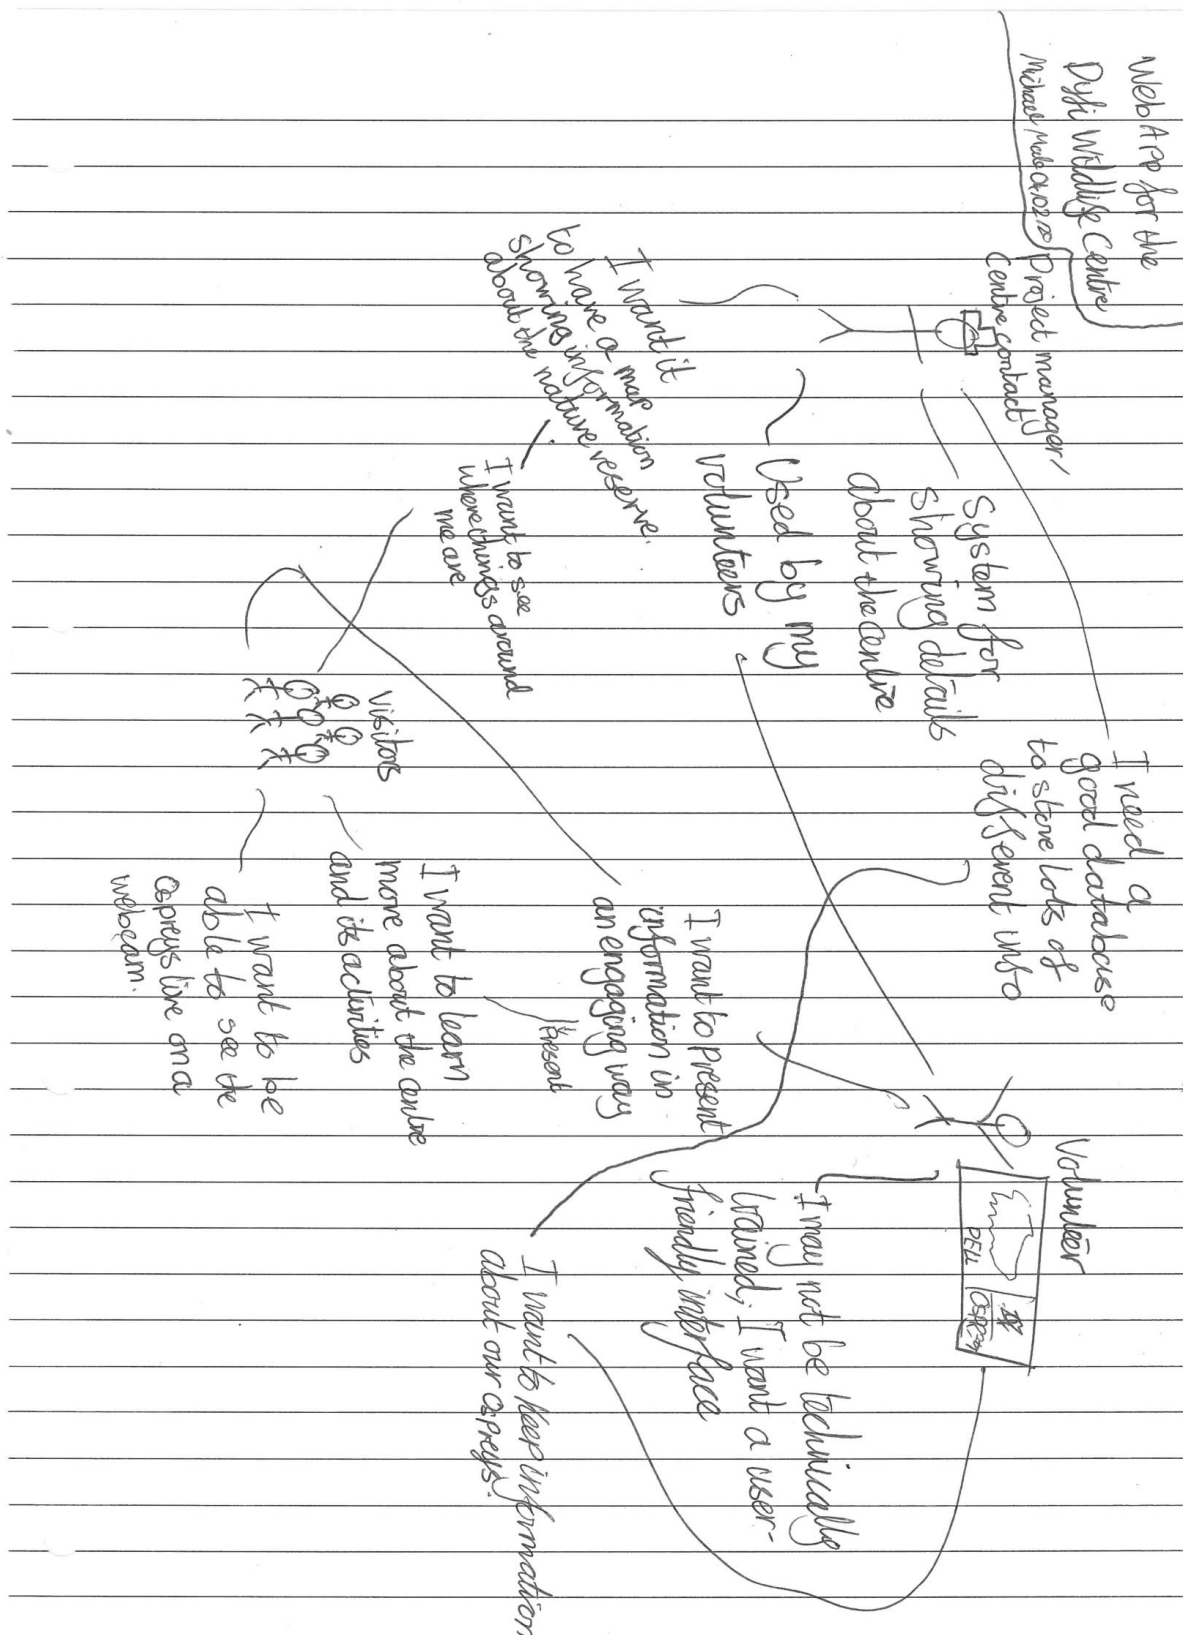 Web App for the
Dyfi Wildlife Centre
Michael Male 04/02/20
Project manager/
Centre contact
I need a
good database
to store lots of
different info
System for
showing details
about the centre
Used by my
volunteers
I want it
to have a map
showing information
about the nature reserve.
I want to see
where things around
me are
Visitors
I want to learn
more about the centre
and its activities
I want to be
able to see the
ospreys live on a
webcam.
I want to present
information in
an engaging way
Present
Volunteer
OSPREY
I may not be technically
trained; I want a user-
friendly interface
I want to keep information
about our ospreys.